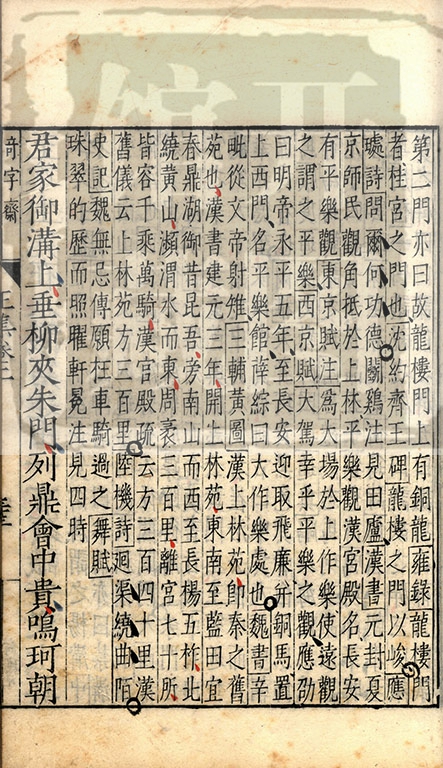 第二門亦曰故龍樓門上有銅龍雍錄龍樓門
者桂宮之門也沈約齊王碑龍樓之門以峻應
璩詩問爾何功德鬭鷄注見田廬漢書元封夏
京師民觀角抵於上林平樂觀漢宮殿名長安
有平樂觀東京賦注爲大場於上作樂使遠觀
之謂之平樂西京賦大駕幸乎平樂之觀應劭
曰明帝永平五年至長安迎取飛廉幷銅馬置
上西門名平樂館薛綜曰大作樂處也魏書辛
毗從文帝射雉三輔黃圖漢上林苑卽秦之舊
苑也漢書建元三年開上林苑東南至藍田宜
春鼎湖御昔昆吾旁南山而西至長楊五柞北
繞黃山瀕渭水而東周袤三百里離宮七十所
皆容千乘萬騎漢宮殿疏云方三百四十里漢
舊儀云上林苑方三百里陸機詩廻渠繞曲陌
史記魏無忌傳願枉車騎過之舞賦
珠翠的歷而照曜軒冕注見四時
君家御溝上垂柳夾朱門列鼎會中貴鳴珂朝
奇字齋